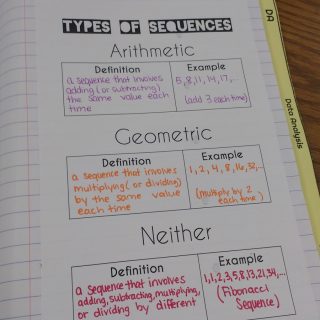 TYPES OF SEQUENCES
Arithmetic
Definition
a sequence that involves
adding (or subtracting)
the same value each
time
Example
5, 8, 11, 14, 17, ..
(add 3 each time)
Geometric
Definition
a sequence that involves
multiplying (or dividing)
by the same value
each time
Example
1, 2, 4, 8, 16, 32, ...
(multiply by 2
each time)
Neither
Definition
a sequence that involves
adding, subtracting, multiplying,
or dividing by different
Example
1, 1, 2, 3, 5, 8, 13, 21, 34, ...
(Fibonacci
Sequence)
DA
Data Analysis